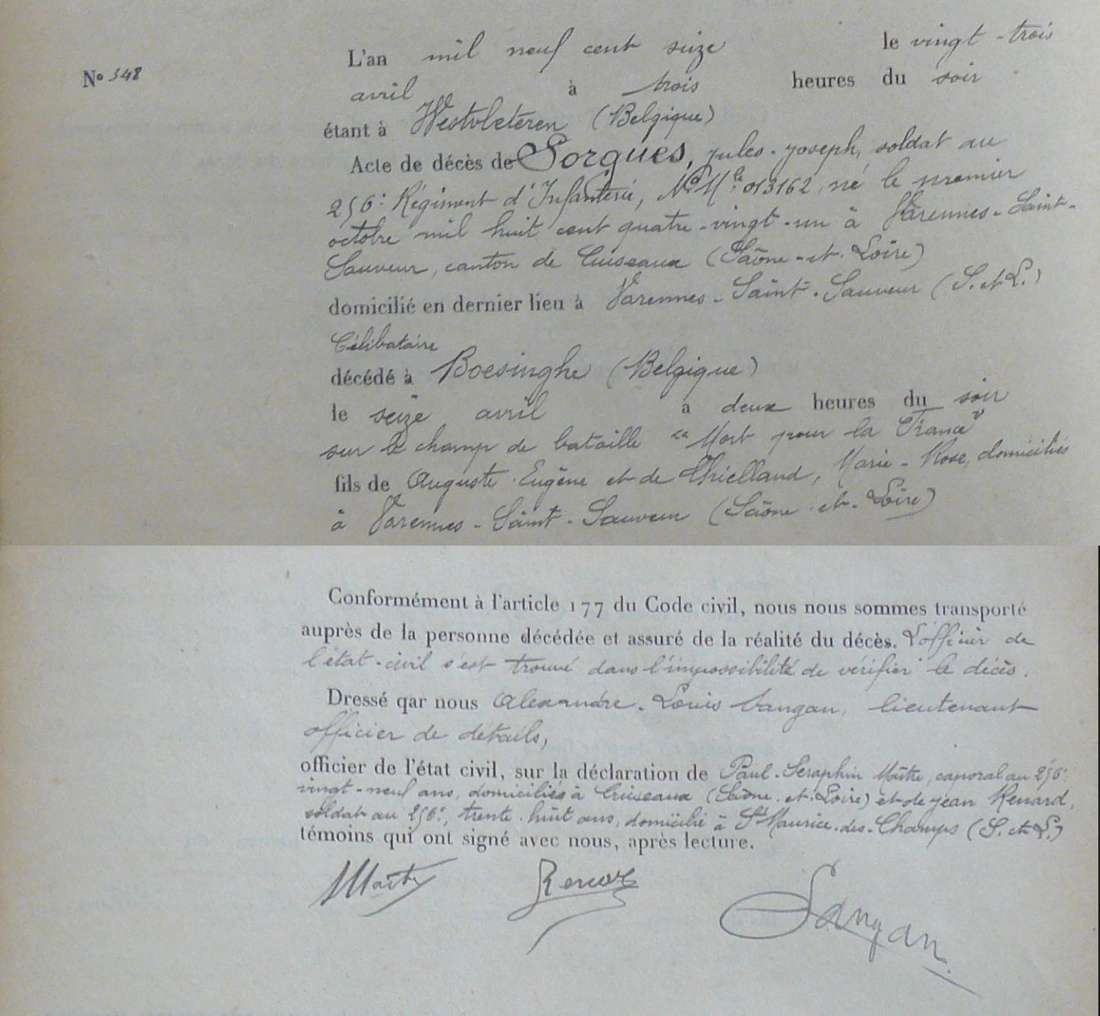 L'an mil neuf cent seize le vingt-trois
No 348
avril à trois heures du soir
étant à Westvleteren (Belgique)
Acte de décès de Sorgues, Jules-Joseph, soldat au
256e Régiment d'Infanterie, No Mle 013162, né le premier
octobre mil huit cent quatre-vingt-un à Varennes-Saint-
Sauveur, canton de Cuiseaux (Saône-et-Loire)
domicilié en dernier lieu à Varennes-Saint-Sauveur (S. et L.)
Célibataire
décédé à Boesinghe (Belgique)
le seize avril à deux heures du soir
sur le champ de bataille "Mort pour la France"
fils de Auguste Eugène et de Thielland, Marie-Rose, domiciliés
à Varennes-Saint-Sauveur (Saône-et-Loire)
Conformément à l'article 177 du Code civil, nous nous sommes transporté
auprès de la personne décédée et assuré de la réalité du décès. L'officier de
l'état-civil s'est trouvé dans l'impossibilité de vérifier le décès.
Dressé qar nous Alexandre-Louis Sangan, lieutenant
officier de détails,
officier de l'état civil, sur la déclaration de Paul-Seraphin caporal au 256e
vingt-neuf ans, domiciliés à Cuiseaux (Saône-et-Loire) et de Jean Renard,
soldat au 256e, trente-huit ans, domicilié à St Maurice-des-Champs (S. et L.)
témoins qui ont signé avec nous, après lecture.
Sangan